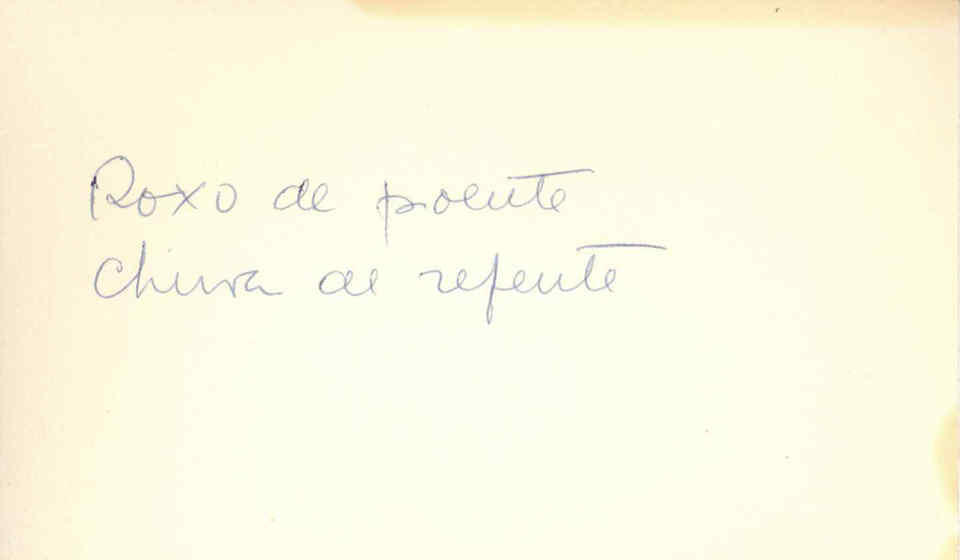 Roxo de poente
Chuva de repente